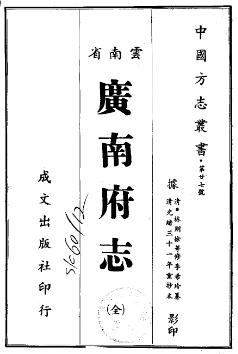 中國方志叢書·第廿七號
據清·林則徐等修李希玲纂
清光緒三十一年重抄本
影印
雲南省
廣南府志
(全)
成文出版社印行